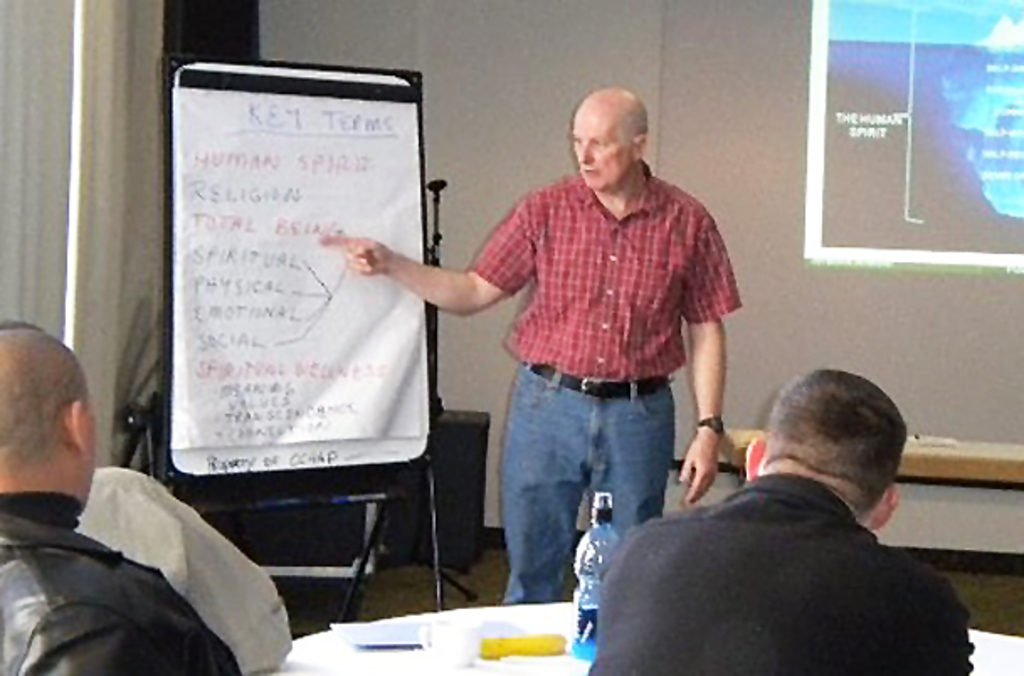 KEY TERMS
HUMAN SPIRIT
RELIGION
TOTAL BEING
SPIRITUAL
PHYSICAL
EMOTIONAL
SOCIAL
SPIRITUAL WELLNESS
- MEANING
- VALUES
- TRANSCENDENCE
- CONNECTION
Property of OCHAP
THE HUMAN
SPIRIT